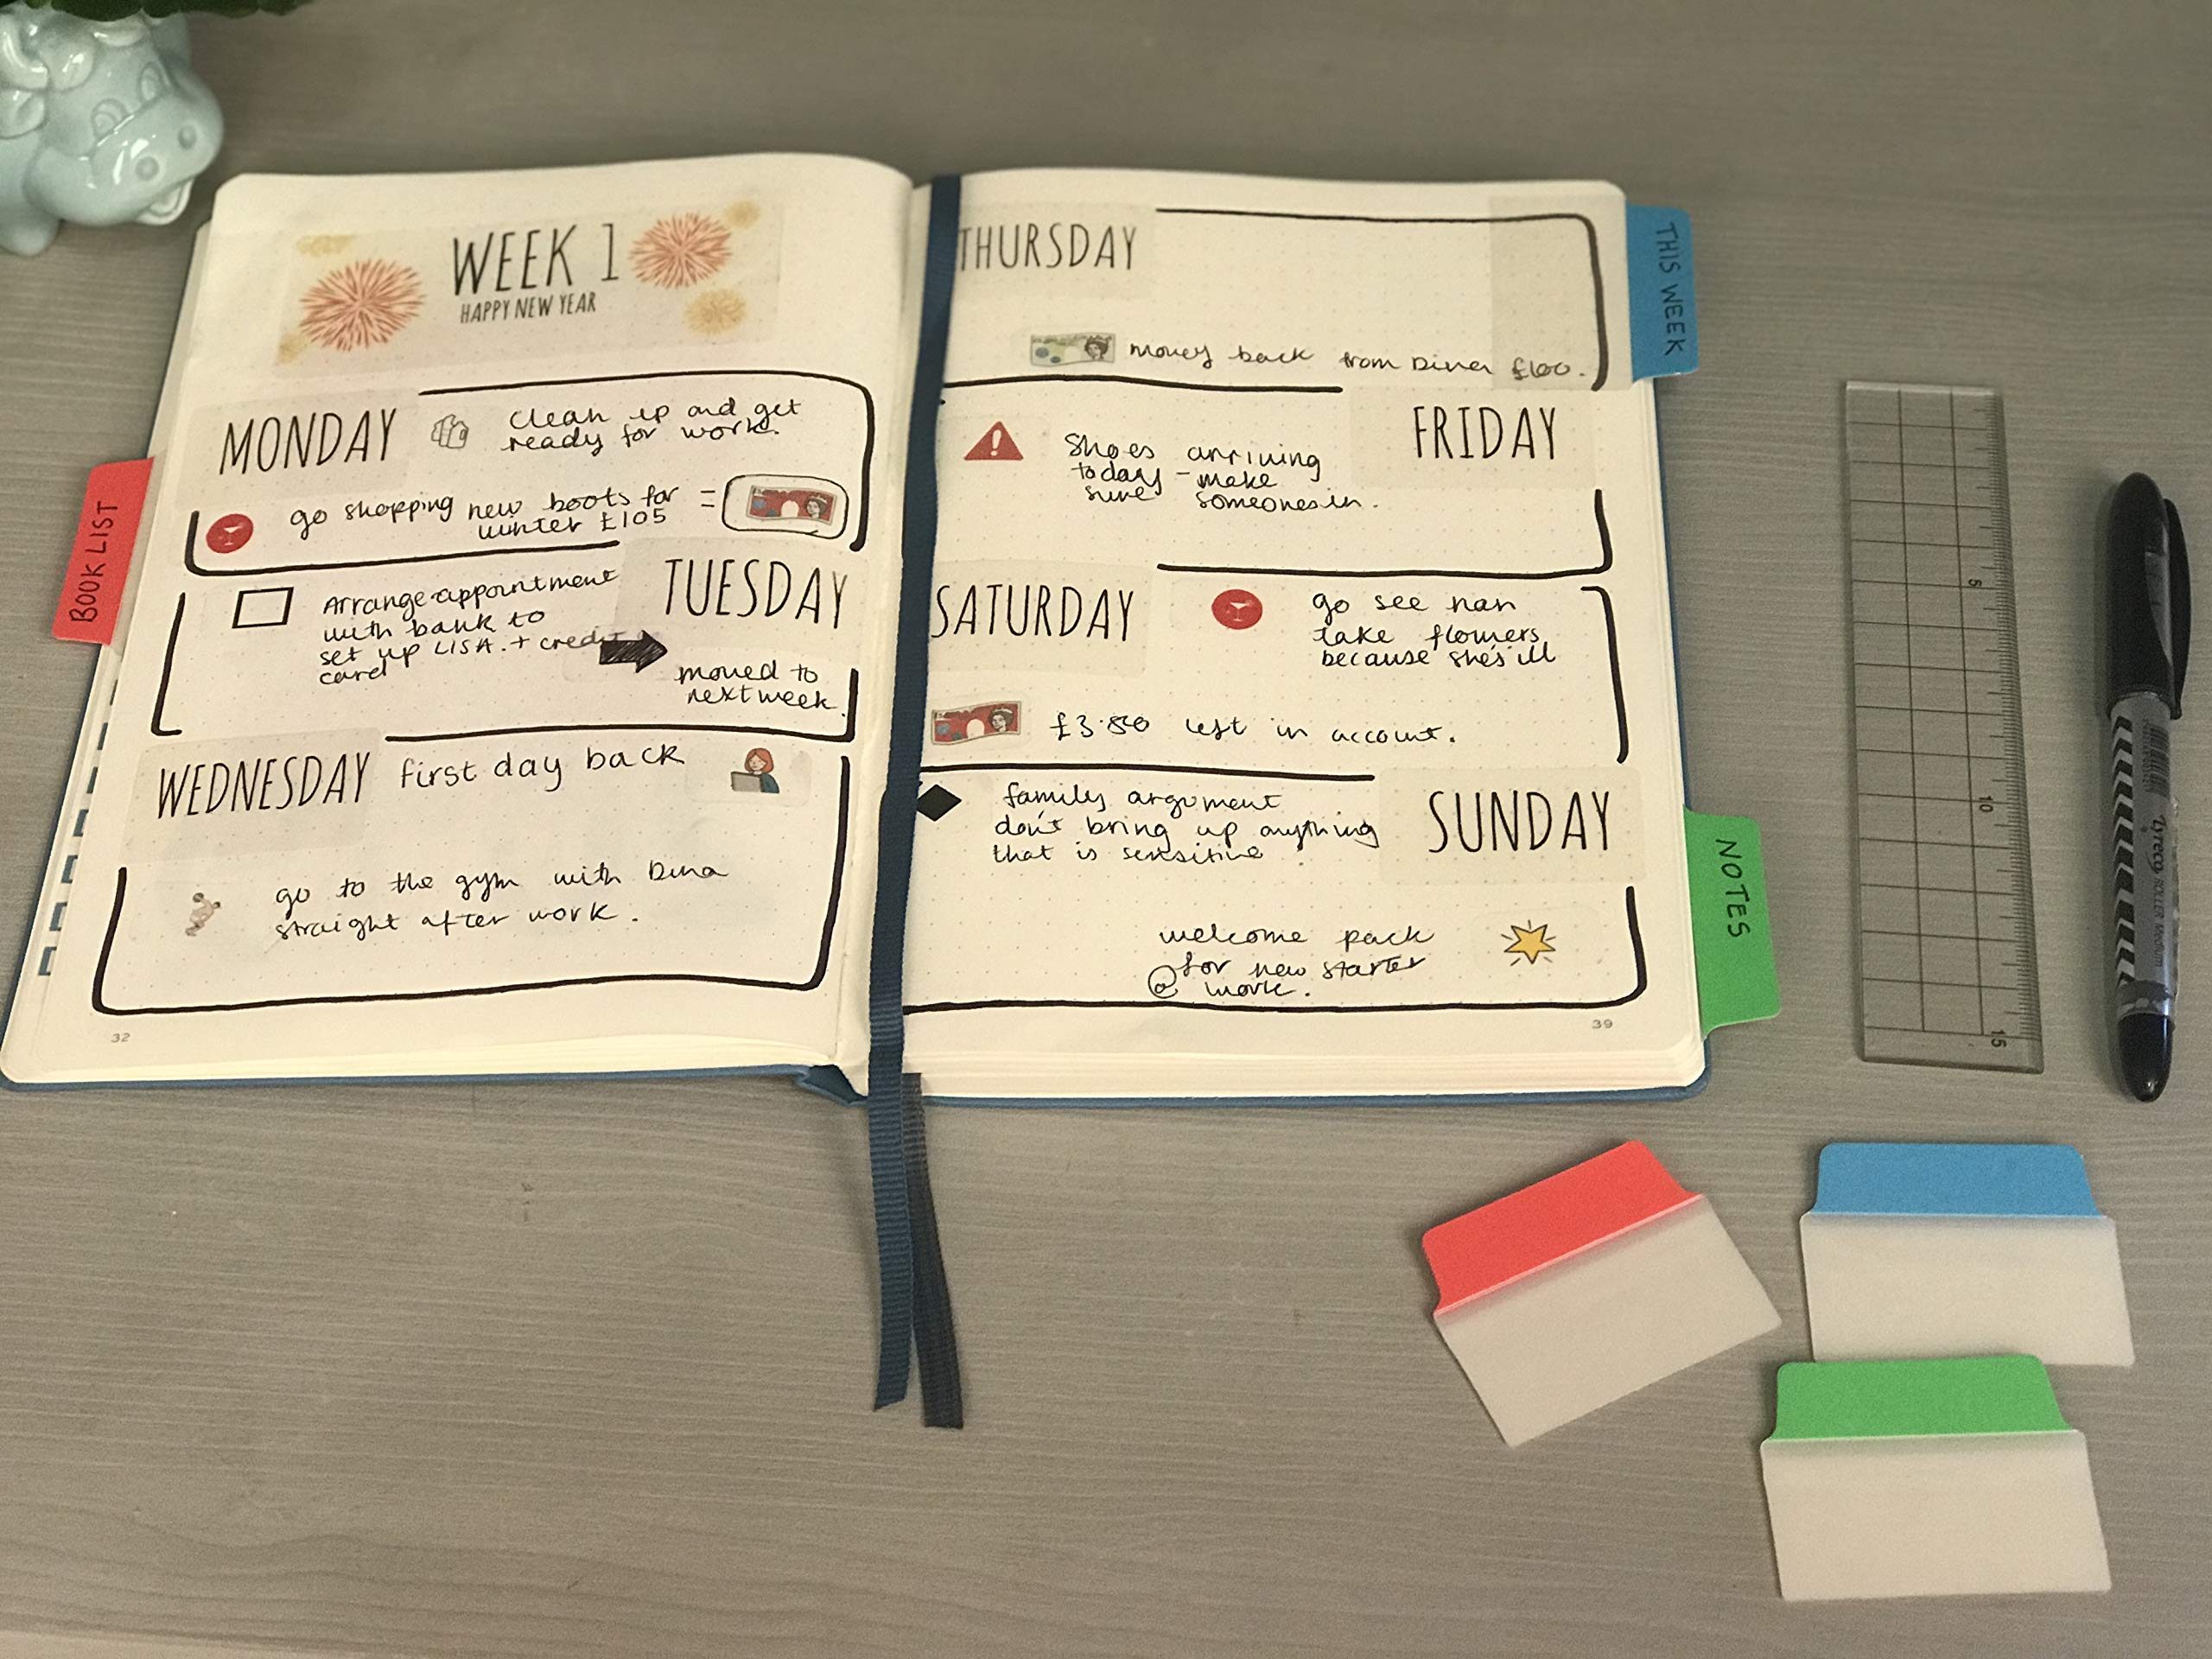 WEEK 1
HAPPY NEW YEAR
MONDAY
Clean up and get
ready for work.
go shopping new boots for =
winter £105
TUESDAY
Arrange appointment
with bank to
set up LISA. + credit
card
moved to
next week.
WEDNESDAY
first day back
go to the gym with Dina
straight after work.
32
THURSDAY
money back from Dina £100.
FRIDAY
Shoes arriving
today - make
sure someones in.
SATURDAY
go see nan
take flowers
because she's ill
left in account.
SUNDAY
family argument
don't bring up anything
that is sensitive
welcome pack
for new starter
@ work.
39
BOOK LIST
THIS WEEK
NOTES
5
10
15
Lyreco ROLLER Medium